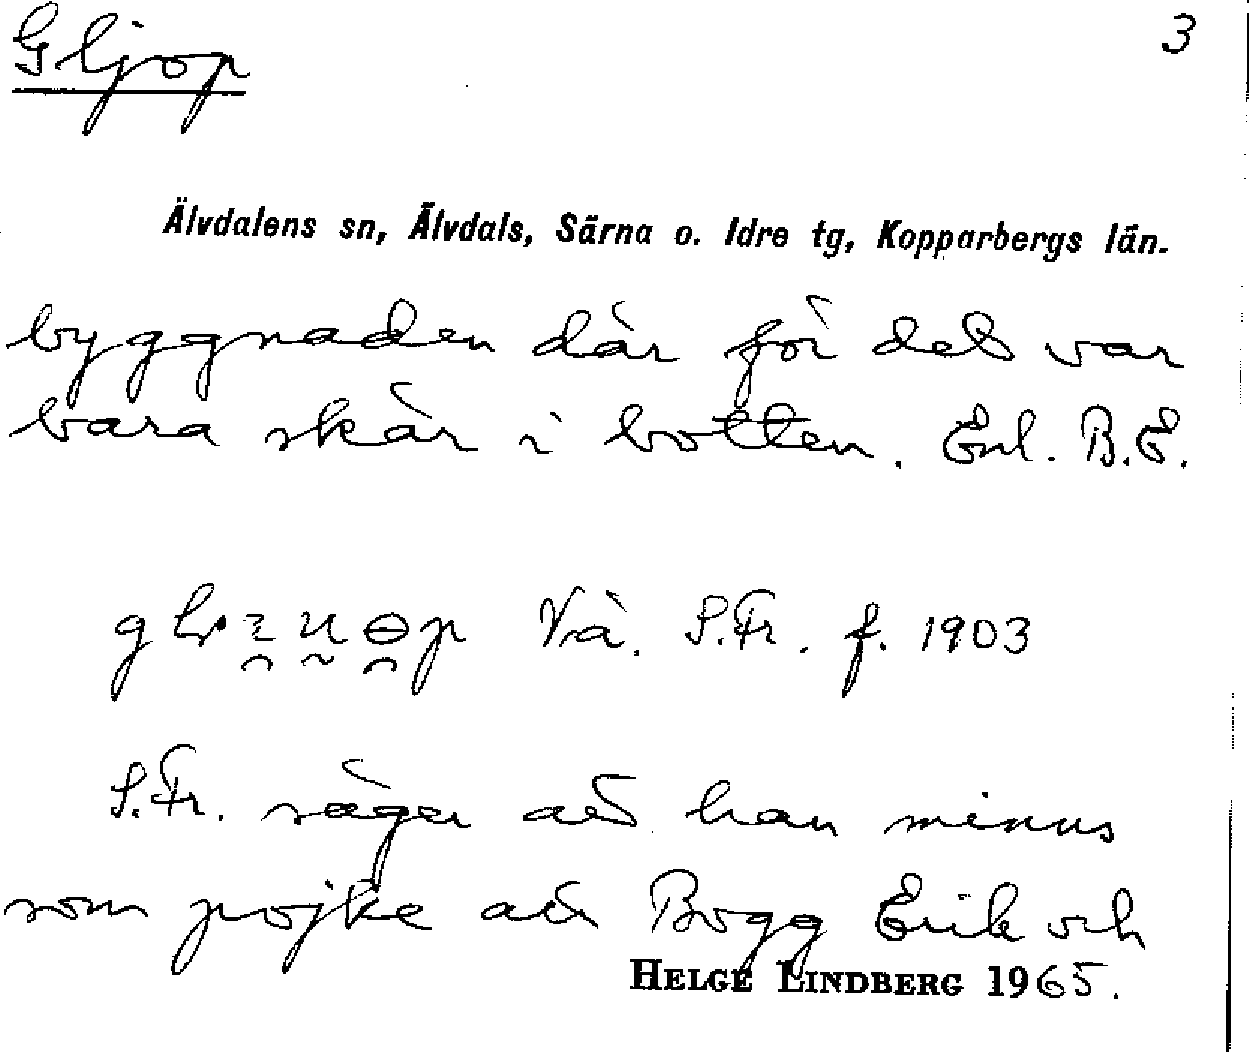 Gljop 3
Älvdalens sn, Älvdals, Särna o. Idre tg, Kopparbergs län.
byggnaden där för det var
bara skär i botten. Enl. B.E.
Vå. S.Fr. f. 1903
S.Fr. säger att han minns
som pojke att Bogg Erik och
HELGE LINDBERG 1965.